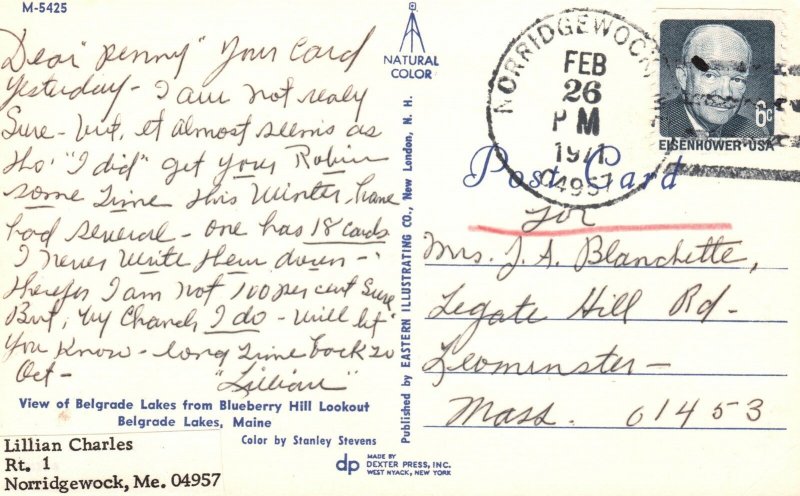 M-5425
Dear "Penny" Your Card
Yesterday - I am not realy
Sure - but, it almost seems as
tho' "I did" get your Robin
some time this Winter, have
had several - one has 18 cards
I never write them down -
therefor I am not 100 per cent Sure
But, by Chance I do - will let
You Know - long time back to
Oct -
"Lillian"
View of Belgrade Lakes from Blueberry Hill Lookout
Belgrade Lakes, Maine
Color by Stanley Stevens
Lillian Charles
Rt. 1
Norridgewock, Me. 04957
NATURAL
COLOR
Published by EASTERN ILLUSTRATING CO., New London, N. H.
dp MADE BY
DEXTER PRESS, INC.
WEST NYACK, NEW YORK
NORRIDGEWOCK
FEB
26
PM
1971
04957
6c
EISENHOWER·USA
Post Card
for
Mrs. J. A. Blanchette,
Legate Hill Rd -
Leominster -
Mass. 01453